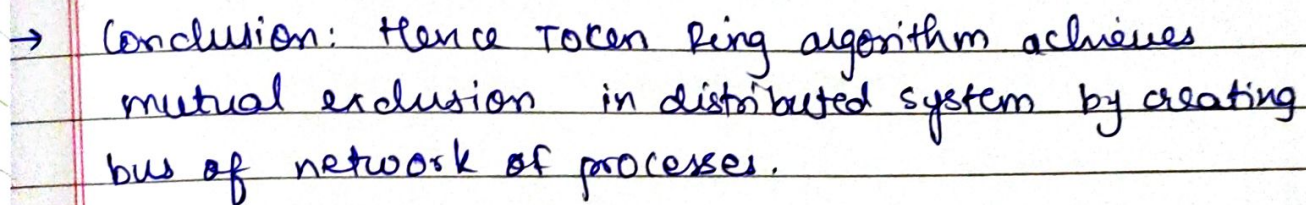 → Conclusion: Hence Token Ring algorithm achieves
mutual exclusion in distributed system by creating
bus of network of processes.